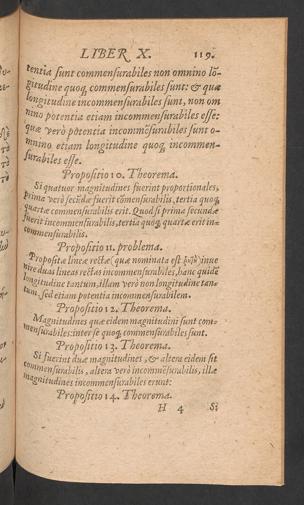 LIBER X. 119.
tentia sunt commensurabiles non omnino lõ-
gitudine quoq; commensurabiles sunt: & quæ
longitudine incommensurabiles sunt, non om
nino potentia etiam incommensurabiles esse:
quæ verò potentia incommẽsurabiles sunt o-
mnino etiam longitudine quoq; incommen-
surabiles esse.
Propositio 10. Theorema.
Si quatuor magnitudines fuerint proportionales,
prima verò secũdæ fuerit cõmensurabilis, tertia quoq;
quartæ commensurabilis erit. Quod si prima secundæ
fuerit incommensurabilis, tertia quoq; quartæ erit in-
commensurabilis.
Propositio 11. problema.
Propositæ lineæ rectæ (quæ nominata est ῥητὴ) inue
nire duas lineas rectas incommensurabiles, hanc quidẽ
longitudine tantum, illam verò non longitudine tan-
tum, sed etiam potentia incommensurabilem.
Propositio 12. Theorema.
Magnitudines quæ eidem magnitudini sunt com-
mensurabiles: inter se quoq; commensurabiles sunt.
Propositio 13. Theorema.
Si fuerint duæ magnitudines, & altera eidem sit
commensurabilis, altera verò incommẽsurabilis, illæ
magnitudines incommensurabiles erunt:
Propositio 14. Theorema.
H 4 Si